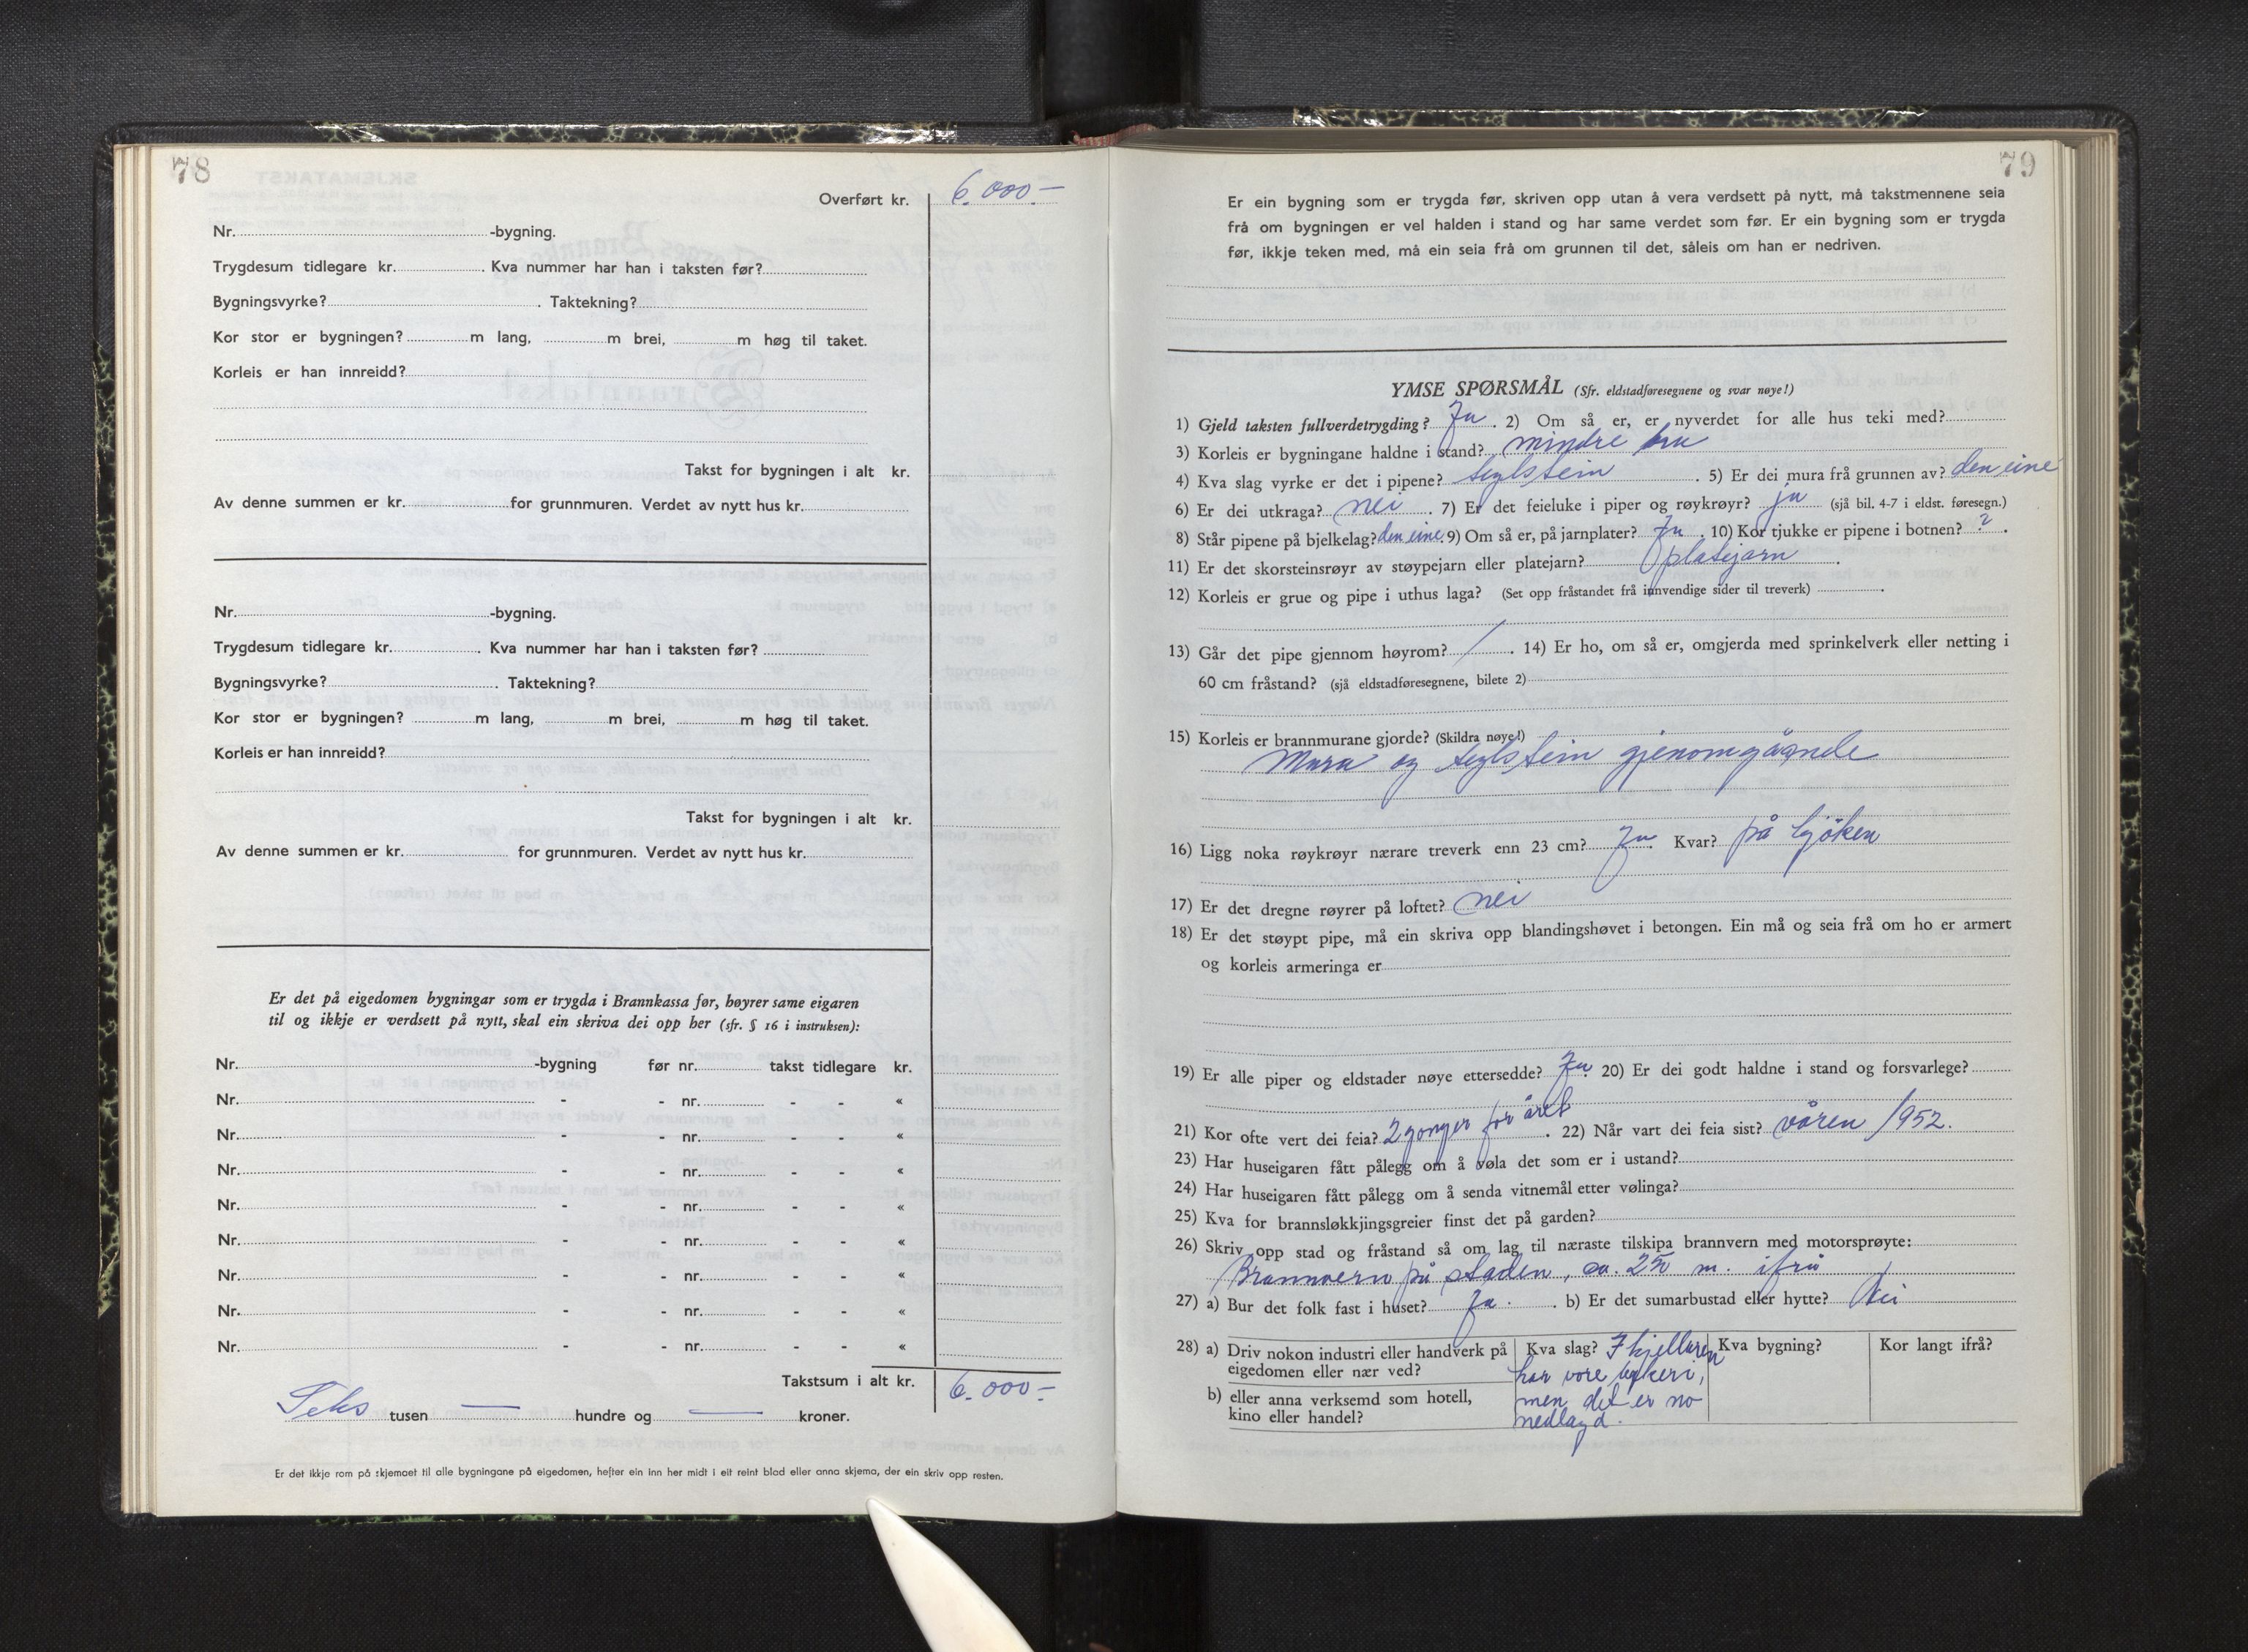 78
Overført kr. 6.000.-
Nr. -bygning.
Trygdesum tidlegare kr. . Kva nummer har han i taksten før?
Bygningsvyrke? . Taktekning?
Kor stor er bygningen? m lang, m brei, m høg til taket.
Korleis er han innreidd?
Takst for bygningen i alt kr.
Av denne summen er kr. for grunnmuren. Verdet av nytt hus kr.
Nr. -bygning.
Trygdesum tidlegare kr. . Kva nummer har han i taksten før?
Bygningsvyrke? . Taktekning?
Kor stor er bygningen? m lang, m brei, m høg til taket.
Korleis er han innreidd?
Takst for bygningen i alt kr.
Av denne summen er kr. for grunnmuren. Verdet av nytt hus kr.
Er det på eigedomen bygningar som er trygda i Brannkassa før, høyrer same eigaren
til og ikkje er verdsett på nytt, skal ein skriva dei opp her (sfr. § 16 i instruksen):
Nr. -bygning før nr. takst tidlegare kr.
Nr. - - nr. - - «
Nr. - - nr. - - «
Nr. - - nr. - - «
Nr. - - nr. - - «
Nr. - - nr. - - «
Nr. - - nr. - - «
Nr. - - nr. - - «
Nr. - - nr. - - «
Takstsum i alt kr. 6.000-
Seks tusen — hundre og — kroner.
Er det ikkje rom på skjemaet til alle bygningane på eigedomen, hefter ein inn her midt i eit reint blad eller anna skjema, der ein skriv opp resten.
79
Er ein bygning som er trygda før, skriven opp utan å vera verdsett på nytt, må takstmennene seia
frå om bygningen er vel halden i stand og har same verdet som før. Er ein bygning som er trygda
før, ikkje teken med, må ein seia frå om grunnen til det, såleis om han er nedriven.
YMSE SPØRSMÅL (Sfr. eldstadføresegnene og svar nøye!)
1) Gjeld taksten fullverdetrygding? Ja . 2) Om så er, er nyverdet for alle hus teki med?
3) Korleis er bygningane haldne i stand? mindre bra
4) Kva slag vyrke er det i pipene? teglstein . 5) Er dei mura frå grunnen av? den eine
6) Er dei utkraga? nei . 7) Er det feieluke i piper og røykrøyr? ja (sjå bil. 4-7 i eldst. føresegn.)
8) Står pipene på bjelkelag? den eine. 9) Om så er, på jarnplater? Ja . 10) Kor tjukke er pipene i botnen? ? .
11) Er det skorsteinsrøyr av støypejarn eller platejarn? platejarn .
12) Korleis er grue og pipe i uthus laga? (Set opp fråstandet frå innvendige sider til treverk) .
13) Går det pipe gjennom høyrom? / . 14) Er ho, om så er, omgjerda med sprinkelverk eller netting i
60 cm fråstand? (sjå eldstadføresegnene, bilete 2)
15) Korleis er brannmurane gjorde? (Skildra nøye!)
Mura og teglstein gjenomgåande
16) Ligg noka røykrøyr nærare treverk enn 23 cm? Ja. Kvar? på kjöken
17) Er det dregne røyrer på loftet? nei
18) Er det støypt pipe, må ein skriva opp blandingshøvet i betongen. Ein må og seia frå om ho er armert
og korleis armeringa er
19) Er alle piper og eldstader nøye ettersedde? Ja. 20) Er dei godt haldne i stand og forsvarlege?
21) Kor ofte vert dei feia? 2 gonger for året . 22) Når vart dei feia sist? våren 1952.
23) Har huseigaren fått pålegg om å vøla det som er i ustand?
24) Har huseigaren fått pålegg om å senda vitnemål etter vølinga?
25) Kva for brannsløkkjingsgreier finst det på garden?
26) Skriv opp stad og fråstand så om lag til næraste tilskipa brannvern med motorsprøyte:
Brannvern på staden, ca. m. ifrå
27) a) Bur det folk fast i huset? Ja. . b) Er det sumarbustad eller hytte? Nei
28) a) Driv nokon industri eller handverk på Kva slag? I kjellaren Kva bygning? Kor langt ifrå?
eigedomen eller nær ved? har vore bakeri,
b) eller anna verksemd som hotell, men det er no
kino eller handel? nedlagd.